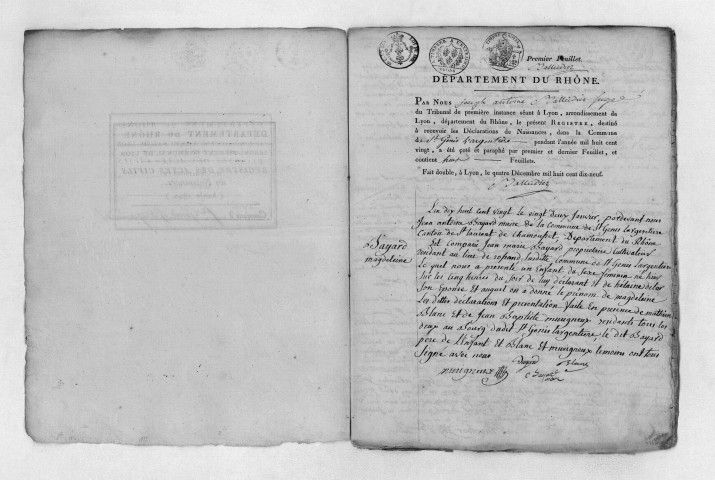 Premier Feuillet.
Vallerdier
DÉPARTEMENT DU RHÔNE.
PAR NOUS joseph antoine Vallerdier juge
du Tribunal de première instance séant à Lyon, arrondissement de
Lyon, département du Rhône, le présent REGISTRE, destiné
à recevoir les Déclarations de Naissances, dans la Commune
de St Genis Largentière pendant l'année mil huit cent
vingt, a été coté et paraphé par premier et dernier Feuillet, et
contient huit Feuillets.
Fait double, à Lyon, le quatre Décembre mil huit cent dix-neuf.
Vallerdier
Bayard
magdeleine
L'an dix huit cent vingt le vingt deux janvier, pardevant nous
Jean antoine Bayard maire de la Commune de St Genis Largentiere
Canton de St Laurent de Chamousset, Département du Rhône
Est Comparu Jean marie Bayard propriétaire Cultivateur
rendant au lieu de susditte Commune de St Genis Largentiere
Lequel nous a présenté un Enfant du sexe feminin né hier
sur les cinq heures du soir de luy déclarant et de
son épouse et auquel on a donné le prénom de magdeleine
Les dittes déclarations et présentation faite En présence de mathieu
Blanc et de Jean Baptiste muigneux rendants tous les
deux au Bourg dudit St Genis Largentiere, le dit Bayard
père de L'Enfant Et Blanc et muigneux temoins ont tous
Signé avec nous
Bayard Blanc
muigneux Bayard